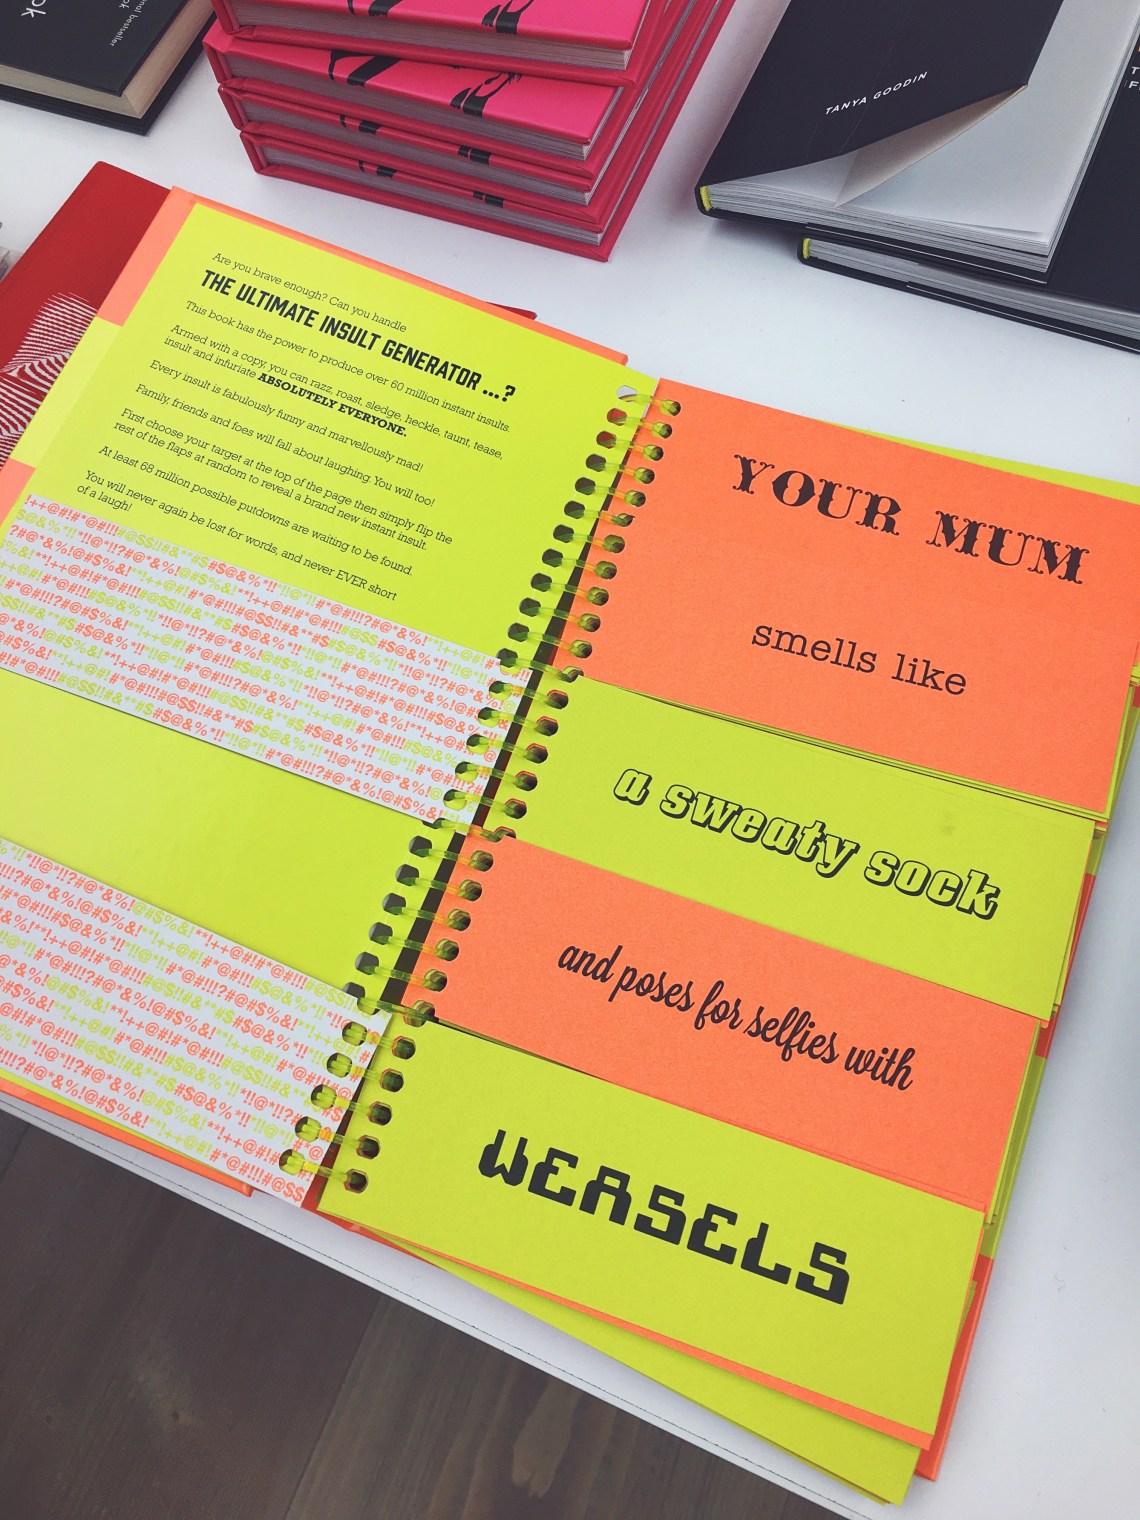 national bestseller
ok
TANYA GOODIN
Are you brave enough? Can you handle
THE ULTIMATE INSULT GENERATOR ...?
This book has the power to produce over 60 million instant insults.
Armed with a copy, you can razz, roast, sledge, heckle, taunt, tease,
insult and infuriate ABSOLUTELY EVERYONE.
Every insult is fabulously funny and marvellously mad!
Family, friends and foes will fall about laughing. You will too!
First choose your target at the top of the page then simply flip the
rest of the flaps at random to reveal a brand new instant insult.
At least 68 million possible putdowns are waiting to be found.
You will never again be lost for words, and never EVER short
of a laugh!
YOUR MUM
smells like
a sweaty sock
and poses for selfies with
WEASELS